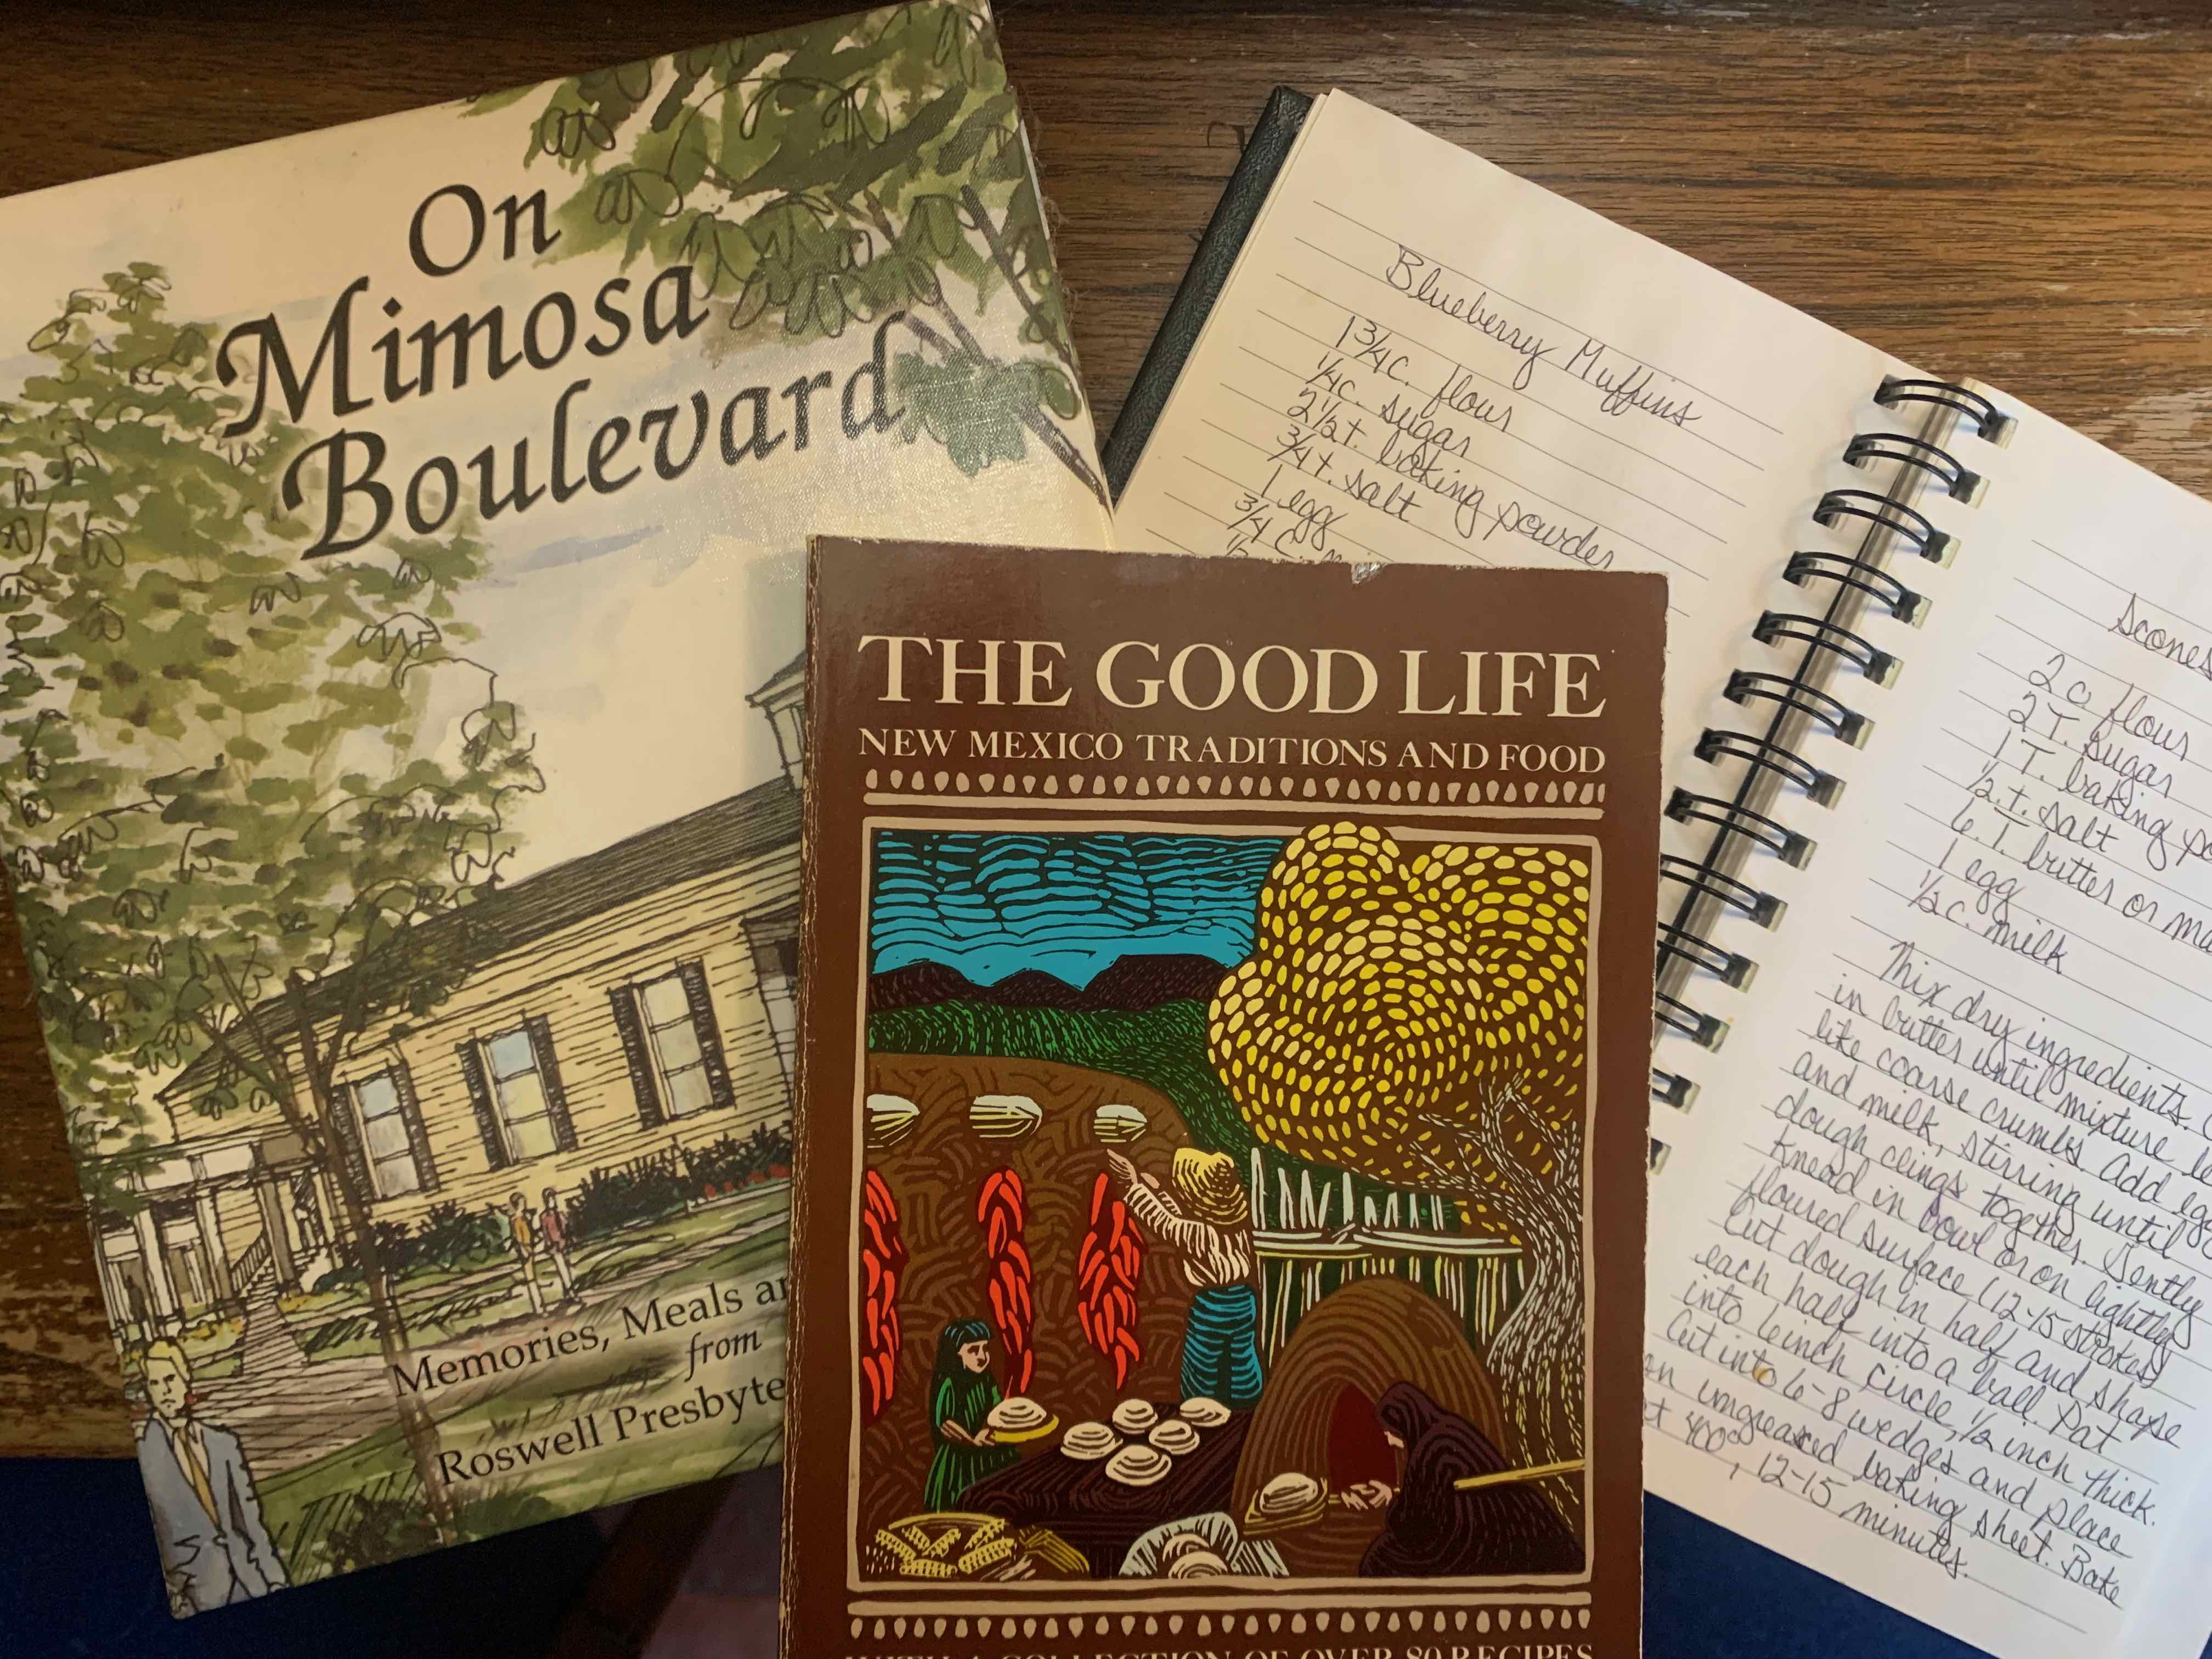 On
Mimosa
Boulevard
Memories, Meals
from
Roswell
THE GOOD LIFE
NEW MEXICO TRADITIONS AND FOOD
WITH A COLLECTION OF OVER 80 RECIPES
Blueberry Muffins
1 3/4 c. flour
1/4 c. sugar
2 1/2 t. baking powder
3/4 t. salt
1 egg
3/4 c.
Scones
2 c flour
2 T. sugar
1 T. baking
1/2 t. salt
6 T. butter or
1 egg
1/2 c. milk
Mix dry ingredients.
in butter until mixture
like coarse crumbs. Add
and milk, stirring until
dough clings together. Gently
knead in bowl or on lightly
floured surface (12-15 strokes)
Cut dough in half and shape
each half into a ball. Pat
into 6 inch circle, 1/2 inch thick.
Cut into 6-8 wedges and place
on ungreased baking sheet. Bake
at 400°, 12-15 minutes.